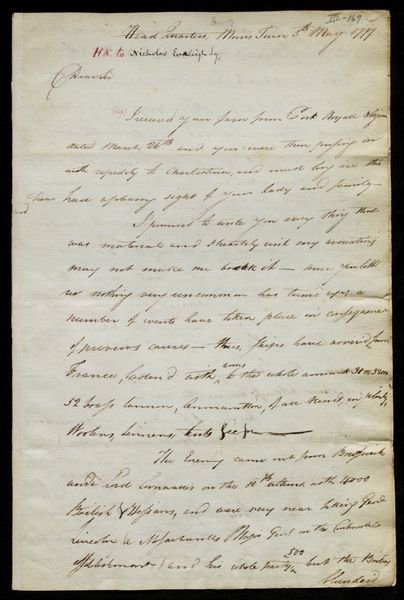 III-169
Head Quarters, Morris Town 5th May 1777
H.K. to Nicholas Eveleigh Esq.
Dear Sir
I received your favor from Port Royall
dated March 26th and you were then pushing on
with rapidity to Charlestown, and must long ere this
have had a pleasing sight of your lady and family
I promised to write you every thing that
was material and I heartily wish my avocations
may not make me break it — since you left
us nothing very uncommon has turn'd up; a
number of events have taken place in consequence
of previous causes — Ships have arrived from
France, laden'd with arms, to the whole amount
52 brass Cannon, Ammunition, of all kinds, in plenty,
Woolens, linnens, tents &c &c
The Enemy came out from Brunswick
under Lord Cornwallis on the 12th ultimo, with 4000
British & Hessians, and were very near taking Genl
Lincoln (a Massachusetts Major Genl on the Continental
establishment) and his whole party, 500 but the Bunting